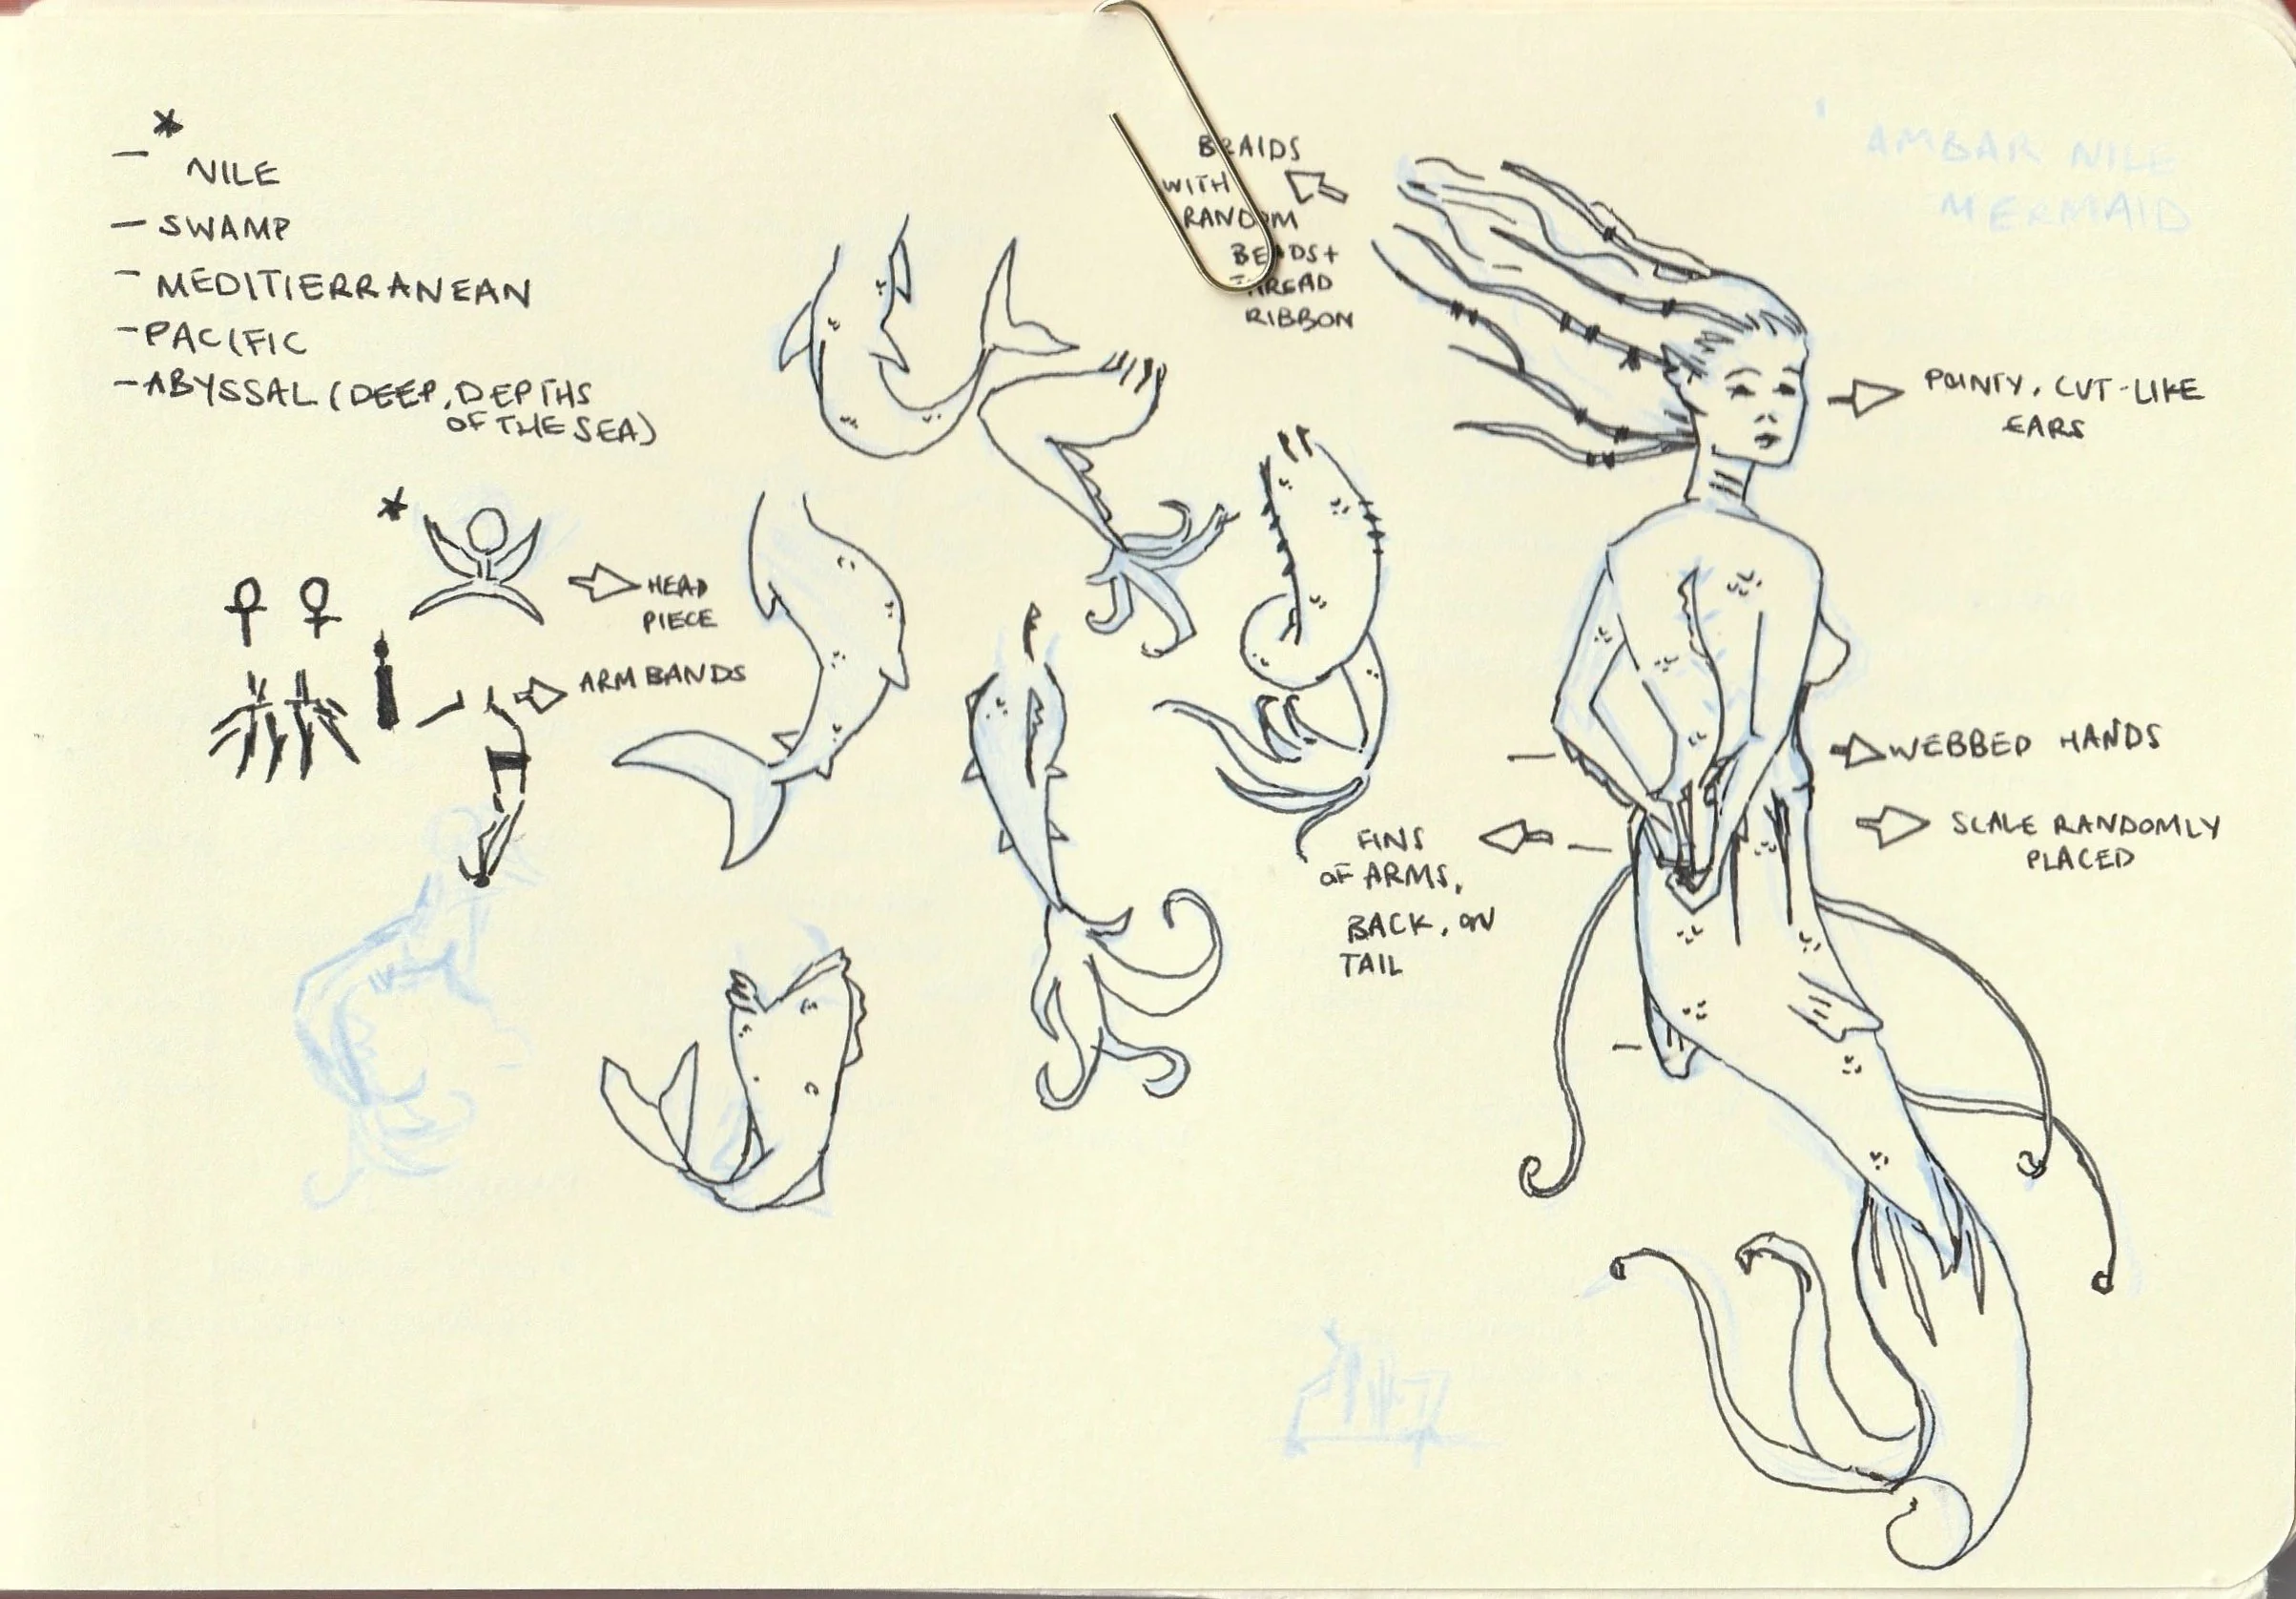 *
– NILE
– SWAMP
– MEDITIERRANEAN
– PACIFIC
– ABYSSAL (DEEP, DEPTHS
OF THE SEA)
*
HEAD
PIECE
ARM BANDS
BRAIDS
WITH
RANDOM
BEADS+
THREAD
RIBBON
AMBAR NILE
MERMAID
POINTY, CUT-LIKE
EARS
WEBBED HANDS
SCALE RANDOMLY
PLACED
FINS
OF ARMS,
BACK, ON
TAIL